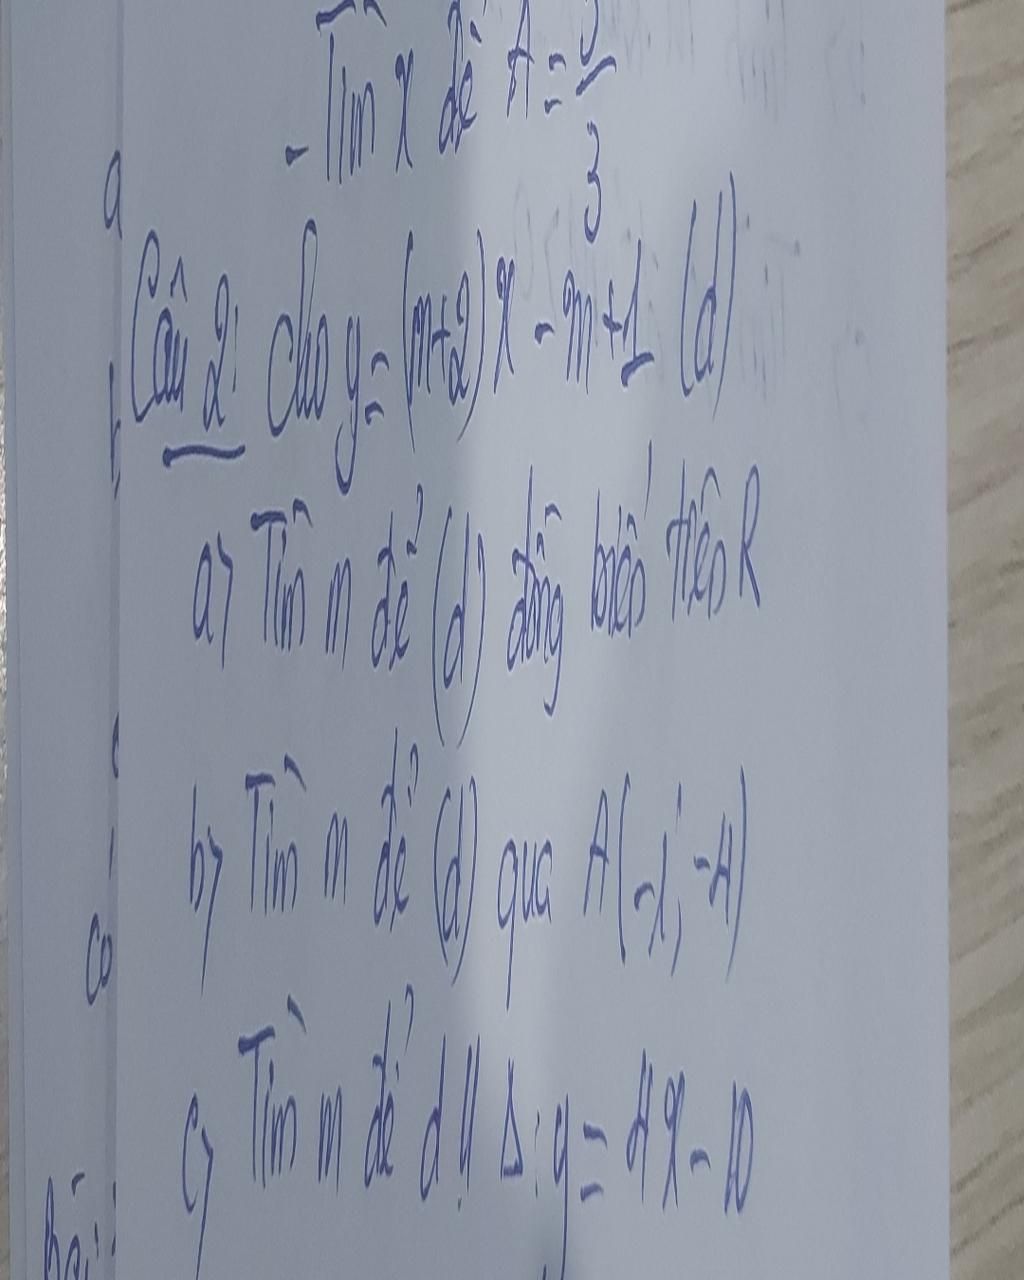 - Tìm x để A = 5/3
Câu 2: cho y = (m+2)x - m + 1 (d)
a) Tìm m để (d) đồng biến trên R
b) Tìm m để (d) qua A(-1; -4)
c) Tìm m để d // Δ: y = 4x - 10